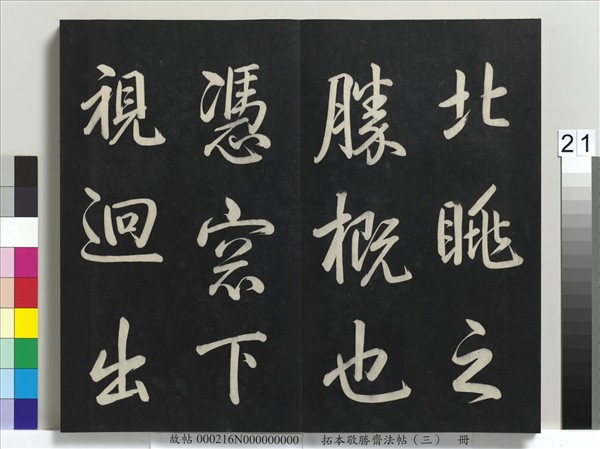 北眺之
勝概也
憑窓下
視迴出
21
故帖 000216N000000000 拓本敬勝齋法帖（三） 冊